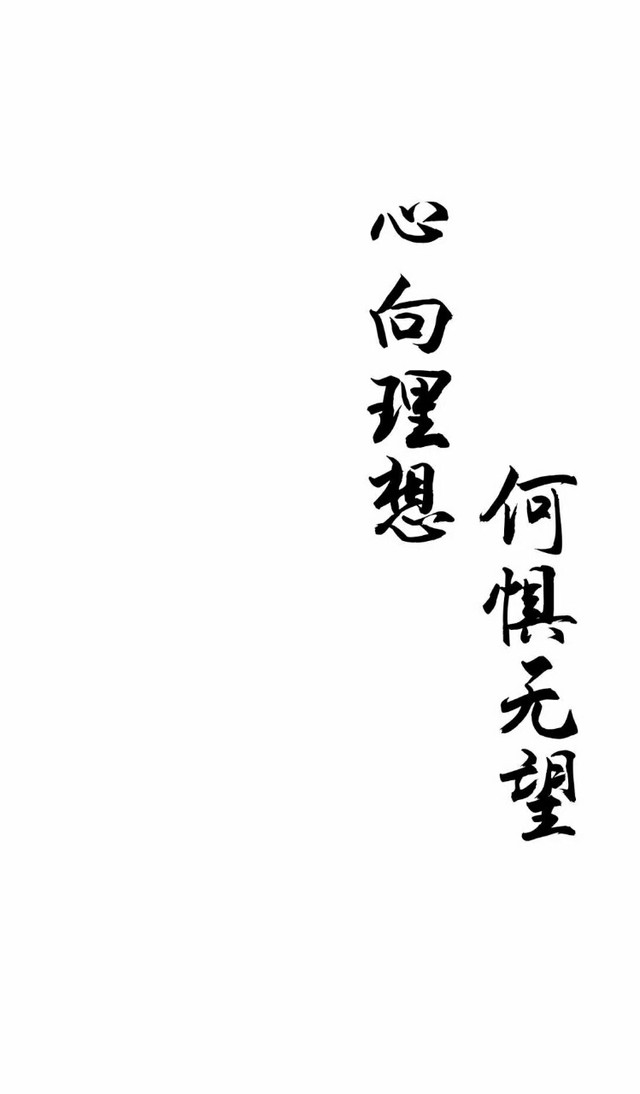 心向理想
何惧无望